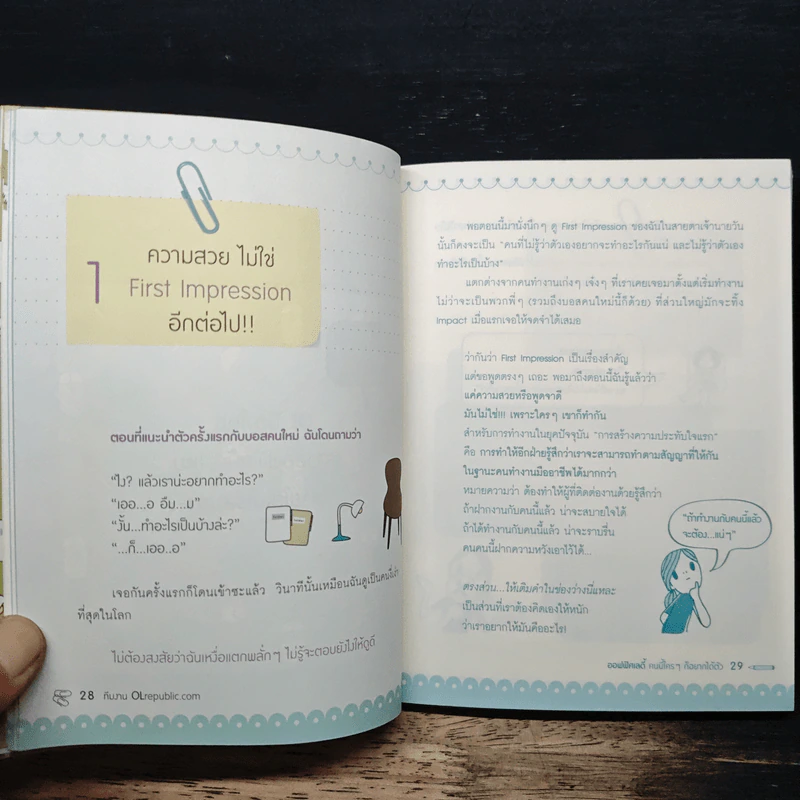 1
ความสวย ไม่ใช่
First Impression
อีกต่อไป!!
ตอนที่แนะนำตัวครั้งแรกกับบอสคนใหม่ ฉันโดนถามว่า
"ไง? แล้วเราน่ะอยากทำอะไร?"
"เออ...อ อืม...ม"
"งั้น...ทำอะไรเป็นบ้างล่ะ?"
"...ก็...เออ..อ"
เจอกันครั้งแรกก็โดนเข้าซะแล้ว วินาทีนั้นเหมือนฉันดูเป็นคนที่
ที่สุดในโลก
ไม่ต้องสงสัยว่าฉันเหงื่อแตกพลั่กๆ ไม่รู้จะตอบยังไงให้ดูดี
28 ทีมงาน OLrepublic.com
พอตอนนี้มานั่งนึกๆ ดู First Impression ของฉันในสายตาเจ้านายวัน
นั้นก็คงจะเป็น "คนที่ไม่รู้ว่าตัวเองอยากจะทำอะไรกันแน่ และไม่รู้ว่าตัวเอง
ทำอะไรเป็นบ้าง"
แตกต่างจากคนทำงานเก่งๆ เจ๋งๆ ที่เราเคยเจอมาตั้งแต่เริ่มทำงาน
ไม่ว่าจะเป็นพวกพี่ๆ (รวมถึงบอสคนใหม่นี้ก็ด้วย) ที่ส่วนใหญ่มักจะทิ้ง
Impact เมื่อแรกเจอให้จดจำได้เสมอ
ว่ากันว่า First Impression เป็นเรื่องสำคัญ
แต่ขอพูดตรงๆ เถอะ พอมาถึงตอนนี้ฉันรู้แล้วว่า
แค่ความสวยหรือพูดจาดี
มันไม่ใช่!!! เพราะใครๆ เขาก็ทำกัน
สำหรับการทำงานในยุคปัจจุบัน "การสร้างความประทับใจแรก"
คือ การทำให้อีกฝ่ายรู้สึกว่าเราจะสามารถทำตามสัญญาที่ให้กัน
ในฐานะคนทำงานมืออาชีพได้มากกว่า
หมายความว่า ต้องทำให้ผู้ที่ติดต่องานด้วยรู้สึกว่า
ถ้าฝากงานกับคนนี้แล้ว น่าจะสบายใจได้
ถ้าได้ทำงานกับคนนี้แล้ว น่าจะราบรื่น
คนคนนี้ฝากความหวังเอาไว้ได้...
"ถ้าทำงานกับคนนี้แล้ว
จะต้อง...แน่ๆ"
ตรงส่วน...ให้เติมคำในช่องว่างนี่แหละ
เป็นส่วนที่เราต้องคิดเองให้หนัก
ว่าเราอยากให้มันคืออะไร!
ออฟฟิศเลดี้ คนนี้ใครๆ ก็อยากได้ตัว 29